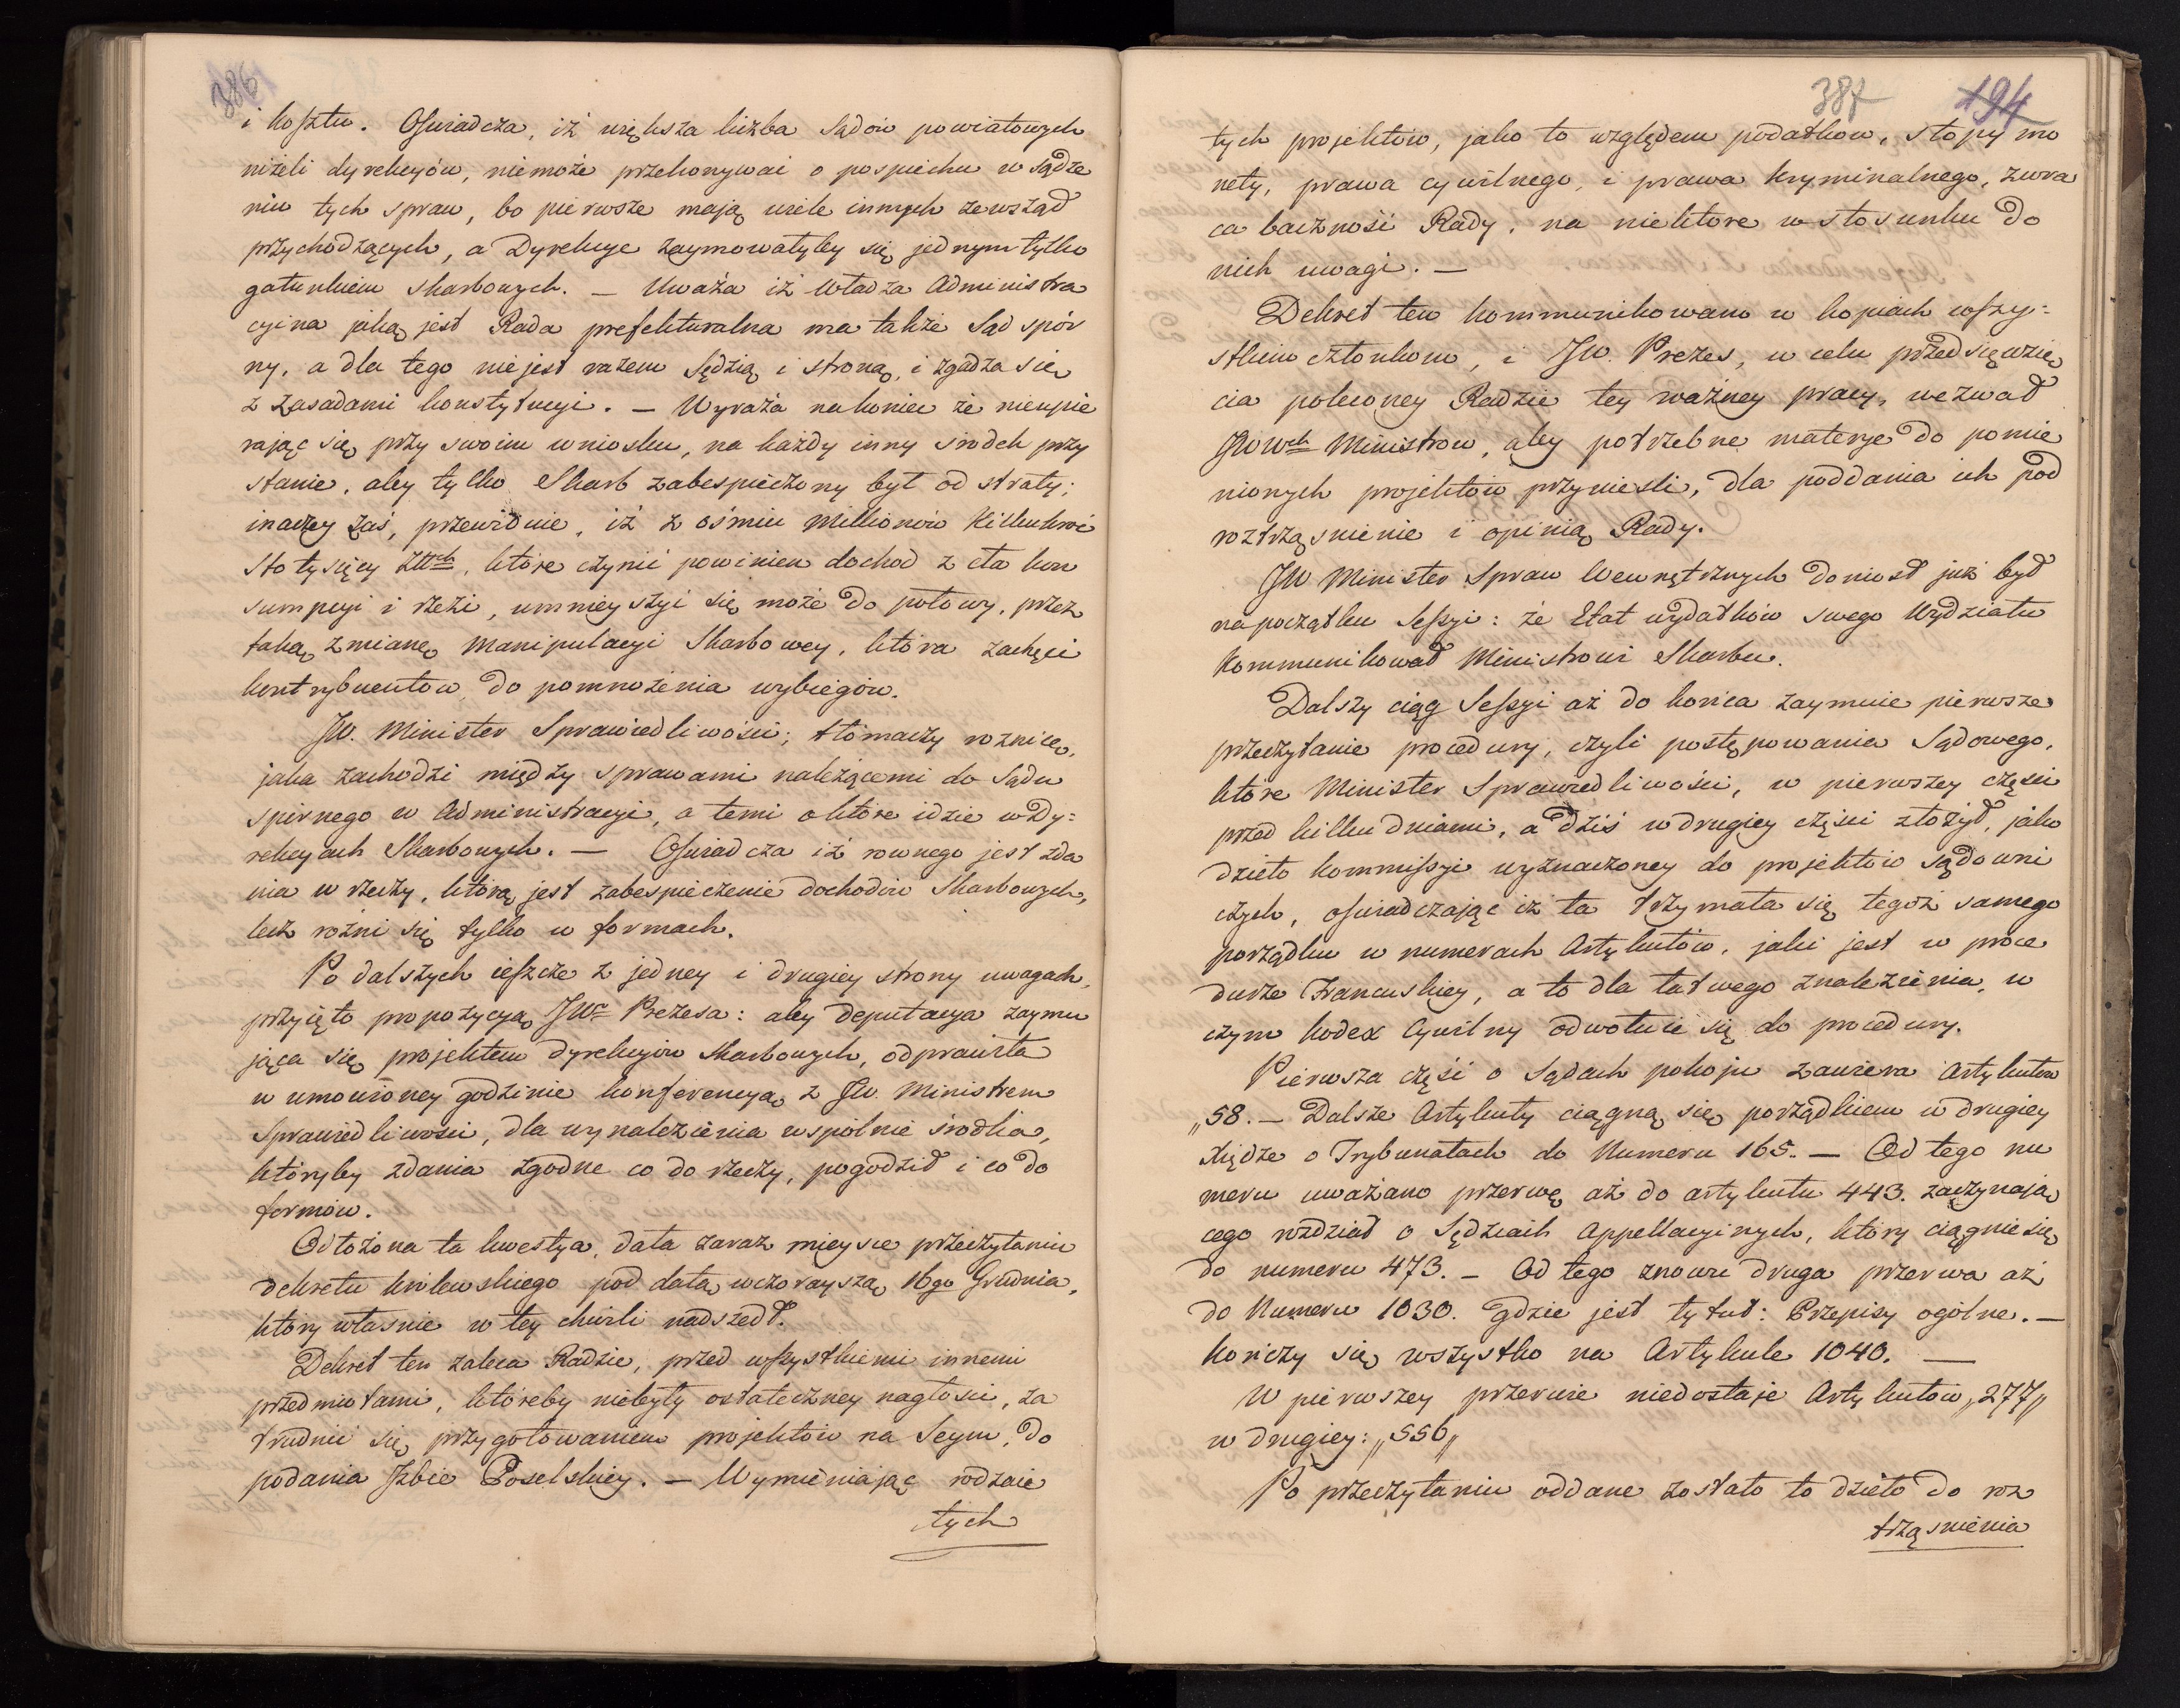 386
i kosztu. Oświadcza, iż większa liczba Sądów powiatowych
niżeli dyrekcyów, niemoże przekonywać o pospiechu w sądze
niu tych spraw, bo pierwsze mają wiele innych zewsząd
przychodzących, a Dyrekcye zaymowałyby się jednym tylko
gatunkiem skarbowych. — Uważa iż Władza Administra
cyina jaką jest Rada prefekturalna ma także Sąd spór
ny, a dla tego nie jest razem Sędzią i stroną, i zgadza się
z zasadami konstytucyi. — Wyraża nakoniec że nieupie
rając się przy swoim wniosku, na każdy inny środek przy
stanie, aby tylko Skarb zabespieczony był od straty;
inaczey zaś, przewiduie, iż z ośmiu Millionów kilkukroć
Sto tysięcy Złłch, które czynić powinien dochod z cła kon
sumpcyi i rzezi, umnieyszyć się może do połowy, przez
taką zmianę manipulacyi Skarbowey, która zachęci
kontrybuentów do pomnożenia wybiegów.
JW. Minister Sprawiedliwości; tłómaczy roznicę,
jaka zachodzi między sprawami należącemi do Sądu
spornego w Administracyi, a temi o które idzie w Dy=
rekcyach Skarbowych. — Oświadcza iż rownego jest zda
nia w rzeczy, którą jest zabespieczenie dochodów Skarbowych,
lecz rożni się tylko w formach.
Po dalszych ieszcze z jedney i drugiey strony uwagach,
przyięto propozycyą JWo Prezesa: aby Deputacya zaymu
jąca się projektem dyrekcyów skarbowych, odprawiła
w umowioney godzinie konferencyą z JW. Ministrem
Sprawiedliwości, dla wynalezienia wspólnie srodka,
któryby zdania zgodne co do rzeczy, pogodził i co do
formów.
Odłożona ta kwestya, dała zaraz mieysce przeczytaniu
Dekretu krolewskiego pod datą wczorayszą 16go Grudnia,
który własnie w tey chwili nadszedł.
Dekret ten zaleca Radzie, przed wszystkiemi innemi
przedmiotami, któreby niebyły ostateczney nagłości, za
trudnić się przygotowaniem projektów na Seym, do
podania Izbie Poselskiey. — Wymieniając rodzaie
tych
387 194
tych projektów, jako to względem podatkow, stopy mo
nety, prawa cywilnego, i prawa kryminalnego, zwra
ca baczność Rady, na niektore w stosunku do
nich uwagi. —
Dekret ten kommunikowano w kopiach wszy=
stkim członkom, i JW. Prezes, w celu przedsięwzię
cia poleconey Radzie tey ważney pracy, wezwał
JWWch Ministrow, aby potrzebne materye do pomie
nionych projektów przyniesli, dla poddania ich pod
roztrząsnienie i opinią Rady.
JW Minister Spraw Wewnętrznych doniosł już był
napoczątku Sessyi: że Etat wydatków swego Wydziału
kommunikował Ministrowi Skarbu.
Dalszy ciąg Sessyi aż do końca zaymuie pierwsze
przeczytanie procedury, czyli postępowania Sądowego,
które Minister Sprawiedliwości, w pierwszey części
przed kilku dniami, a dziś w drugiey części złożył, jako
dzieło kommissyi wyznaczoney do projektów sądowni
czych, oświadczając iż ta trzymała się tegoż samego
porządku w numerach Artykułów, jaki jest w proce
durze Francuskiey, a to dla łatwego znalezienia, w
czym kodex Cywilny odwołuie się do procedury.
Pierwsza część o Sądach pokoju zawiera Artykułow
„58. — Dalsze Artykuły ciągną się porządkiem w drugiey
Xiędze o Trybunałach do Numeru 165. — Od tego nu
meru uważano przerwę aż do artykułu 443. zaczynają
cego rozdział o Sędziach Appellacyinych, który ciągnie się
do numeru 473. — Od tego znowu druga przerwa aż
do Numeru 1030. gdzie jest tytuł: Przepisy ogólne. —
kończy się wszystko na Artykule 1040. —
W pierwszey przerwie niedostaje Artykułów „277„
w drugiey: „556„
Po przeczytaniu oddane zostało to dzieło do roz
trząsnienia